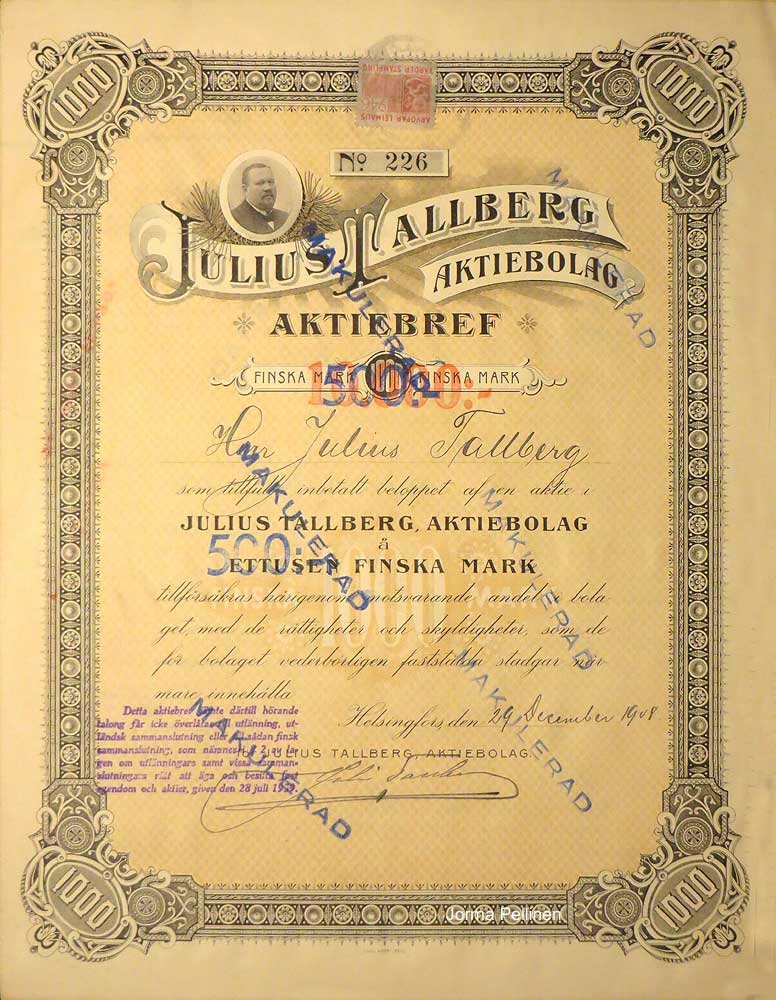 1000
1000
ARVOPAP. LEIMAUS
No 226
JULIUS TALLBERG
AKTIEBOLAG
AKTIEBREF
FINSKA MARK FINSKA MARK
500:-
Herr Julius Tallberg
som tillfullo inbetalt beloppet af en aktie i
JULIUS TALLBERG, AKTIEBOLAG
à
500:-
ETTUSEN FINSKA MARK
1000
tillförsäkras härigenom motsvarande andel i bola-
get, med de rättigheter och skyldigheter, som de
för bolaget vederbörligen fastställda stadgar när-
mare innehålla
Helsingfors den 29 December 1908
JULIUS TALLBERG, AKTIEBOLAG.
Detta aktiebref jämte därtill hörande
talong får icke överlåtas till utlänning, ut-
ländsk sammanslutning eller till sådan finsk
sammanslutning, som nämnes i § 2 av la-
gen om utlänningars samt vissa samman-
slutningars rätt att äga och besitta fast
egendom och aktier, given den 28 juli 1939.
MAKULERAD
MAKULERAD
MAKULERAD
MAKULERAD
MAKULERAD
MAKULERAD
1000
1000
Jorma Pellinen